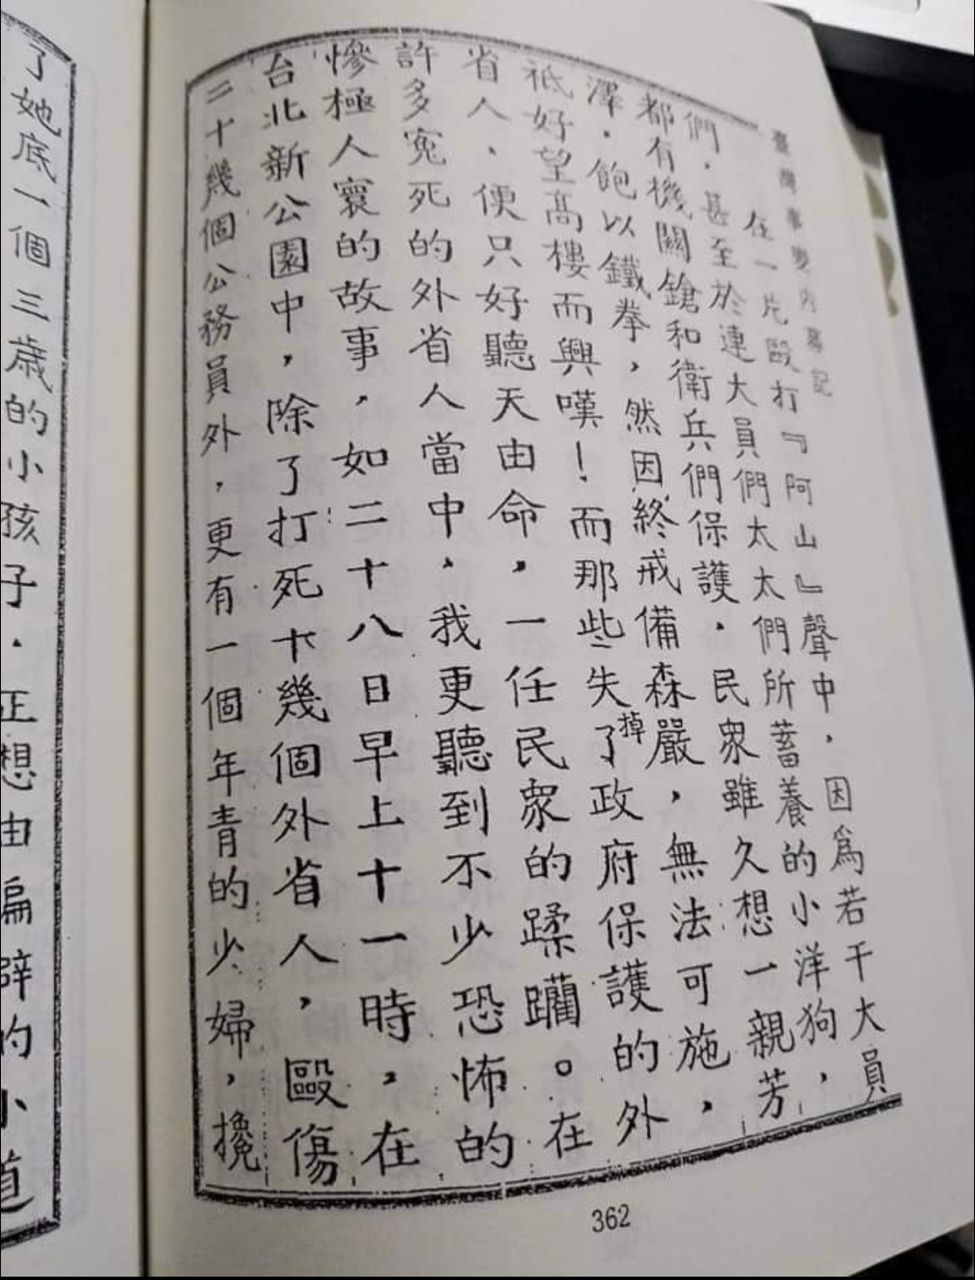 臺灣事變內幕記
在一片毆打『阿山』聲中，因為若干大員
們，甚至於連大員們太太們所蓄養的小洋狗，
都有機關鎗和衛兵們保護，民眾雖久想一親芳
澤，飽以鐵拳，然因終戒備森嚴，無法可施，
祇好望高樓而興嘆！而那些失掉了政府保護的外
省人，便只好聽天由命，一任民眾的蹂躪。在
許多冤死的外省人當中，我更聽到不少恐怖的
慘極人寰的故事，如二十八日早上十一時，在
台北新公園中，除了打死十幾個外省人，毆傷
二十幾個公務員外，更有一個年青的少婦，攙
362
了她底一個三歲的小孩子，正想由偏辟的小道